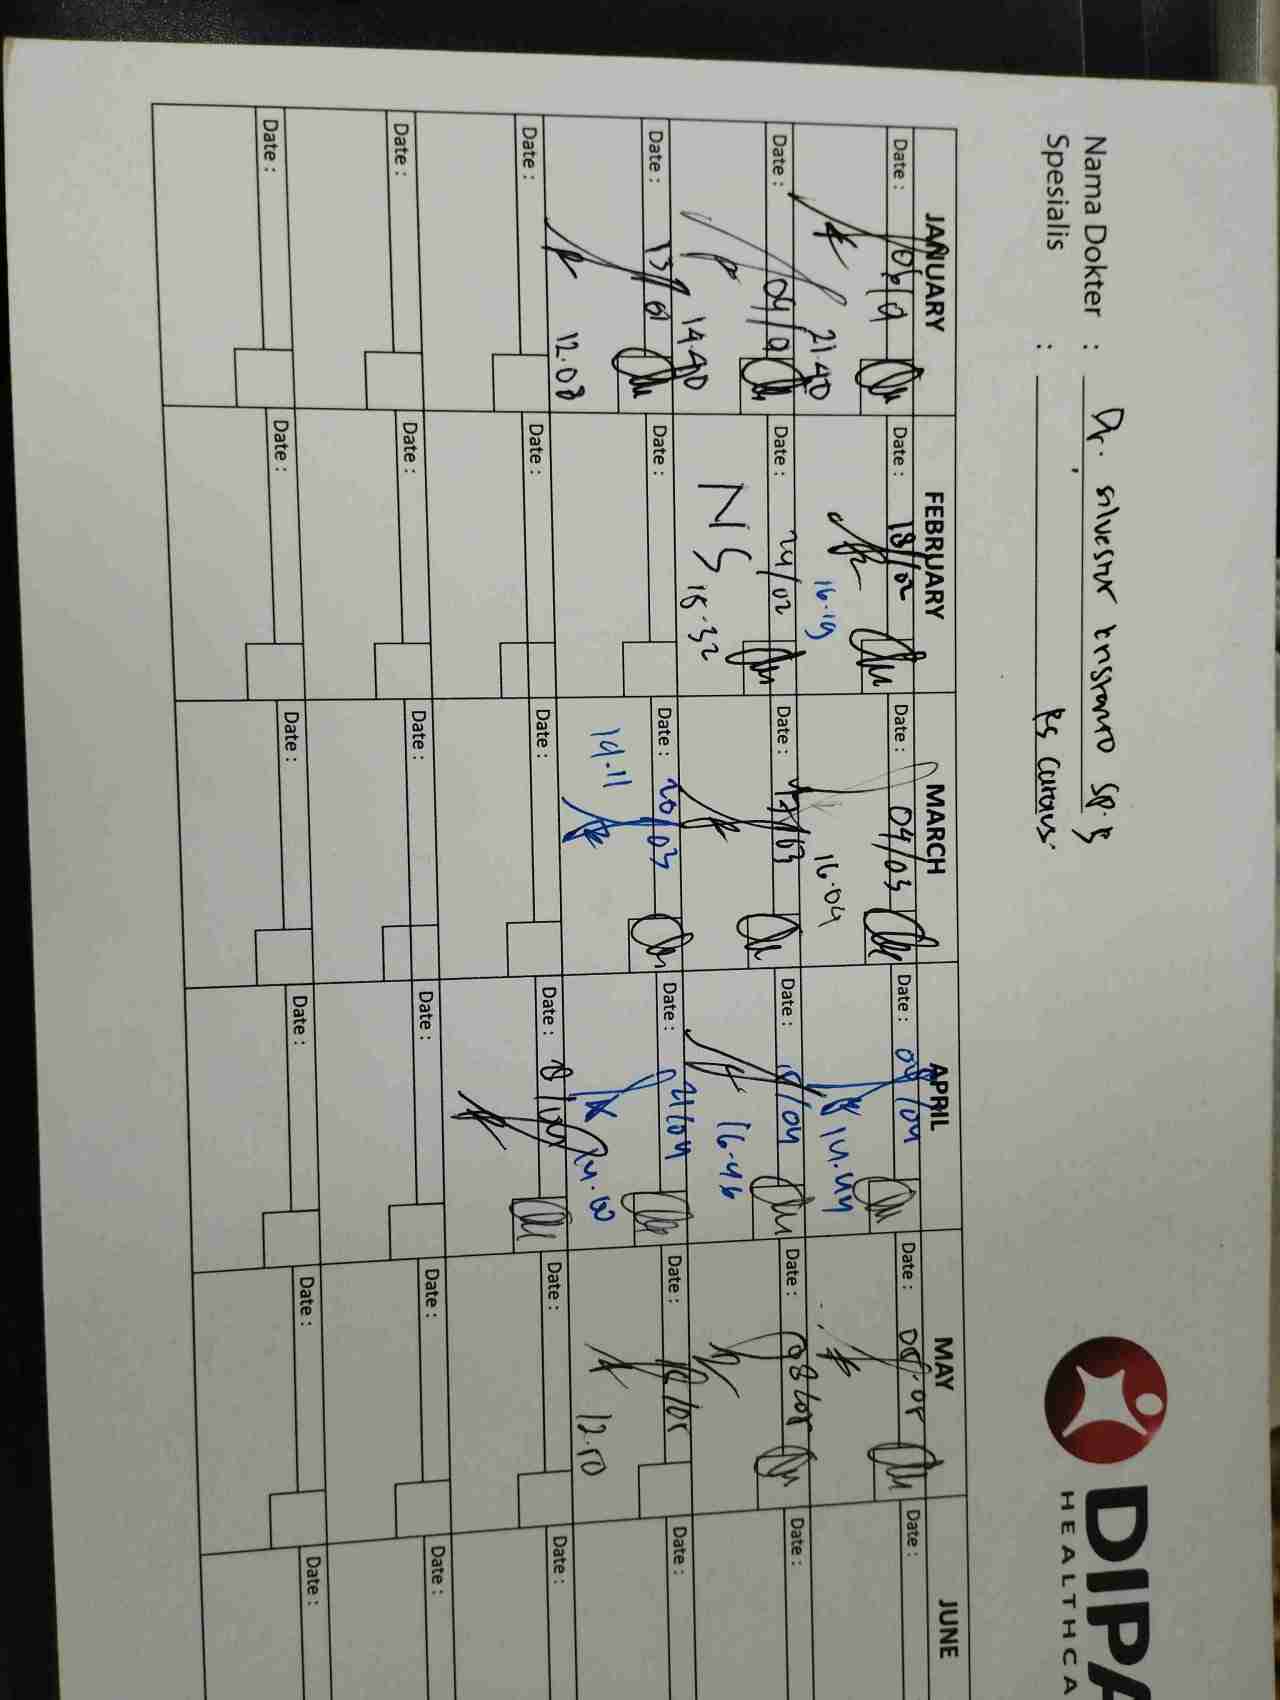 Nama Dokter : Dr. silvester krisranto sp. B
Spesialis : RS Carolus.
DIPA
HEALTHCA
JANUARY FEBRUARY MARCH APRIL MAY JUNE
Date : Date : 18/02 Date : 04/03 Date : 08/04 Date : 05.05 Date :
21.40 16.19 16.04 14.44
Date : Date : 24/02 Date : Date : Date : 08/05 Date :
14.40 NS 15.32 16.46
Date : 13/01 Date : Date : 20/03 Date : 21/04 Date : Date :
12.08 14.11 12.10
Date : Date : Date : Date : Date : Date :
Date : Date : Date : Date : Date : Date :
Date : Date : Date : Date : Date : Date :